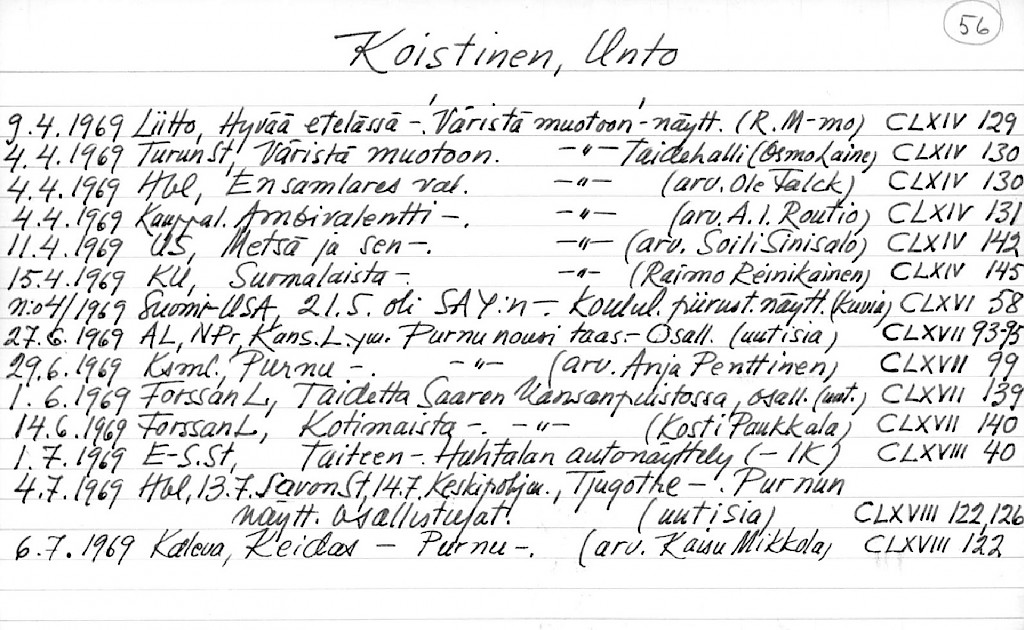 56
Koistinen, Unto
9.4.1969 Liitto, Hyvää etelässä -. 'Väristä muotoon'-näytt. (R.M-mo) CLXIV 129
4.4.1969 TurunSt, Väristä muotoon. -"- Taidehalli (Osmo Laine) CLXIV 130
4.4.1969 Hbl, En samlares val. -"- (arv. Ole Falck) CLXIV 130
4.4.1969 Kauppal. Ambivalentti -. -"- (arv. A.I. Routio) CLXIV 131
11.4.1969 US, Metsä ja sen -. -"- (arv. Soili Sinisalo) CLXIV 142
15.4.1969 KU, Suomalaista -. -"- (Raimo Reinikainen) CLXIV 145
n:o 4/1969 Suomi-USA, 21.5. oli SAY:n - koulul. piirust. näytt. (Kuvia) CLXVI 58
27.6.1969 AL, NPr, Kans.L. ym. Purnu nousi taas - Osall. (uutisia) CLXVII 93-95
29.6.1969 Ksml, Purnu -. -"- (arv. Anja Penttinen) CLXVII 99
1.6.1969 ForssanL, Taidetta Saaren kansanpuistossa, osall. (uut.) CLXVII 139
14.6.1969 ForssanL, Kotimaista -. -"- (Kosti Paukkala) CLXVII 140
1.7.1969 E-S.St, Taiteen -. Huhtalan autonäyttely (- IK) CLXVIII 40
4.7.1969 Hbl, 13.7. SavonSt, 14.7. Keskipohjm., Tjugothe -. Purnun
näytt. osallistujat. (uutisia) CLXVIII 122, 126
6.7.1969 Kaleva, Keidas - Purnu -. (arv. Kaisu Mikkola) CLXVIII 122